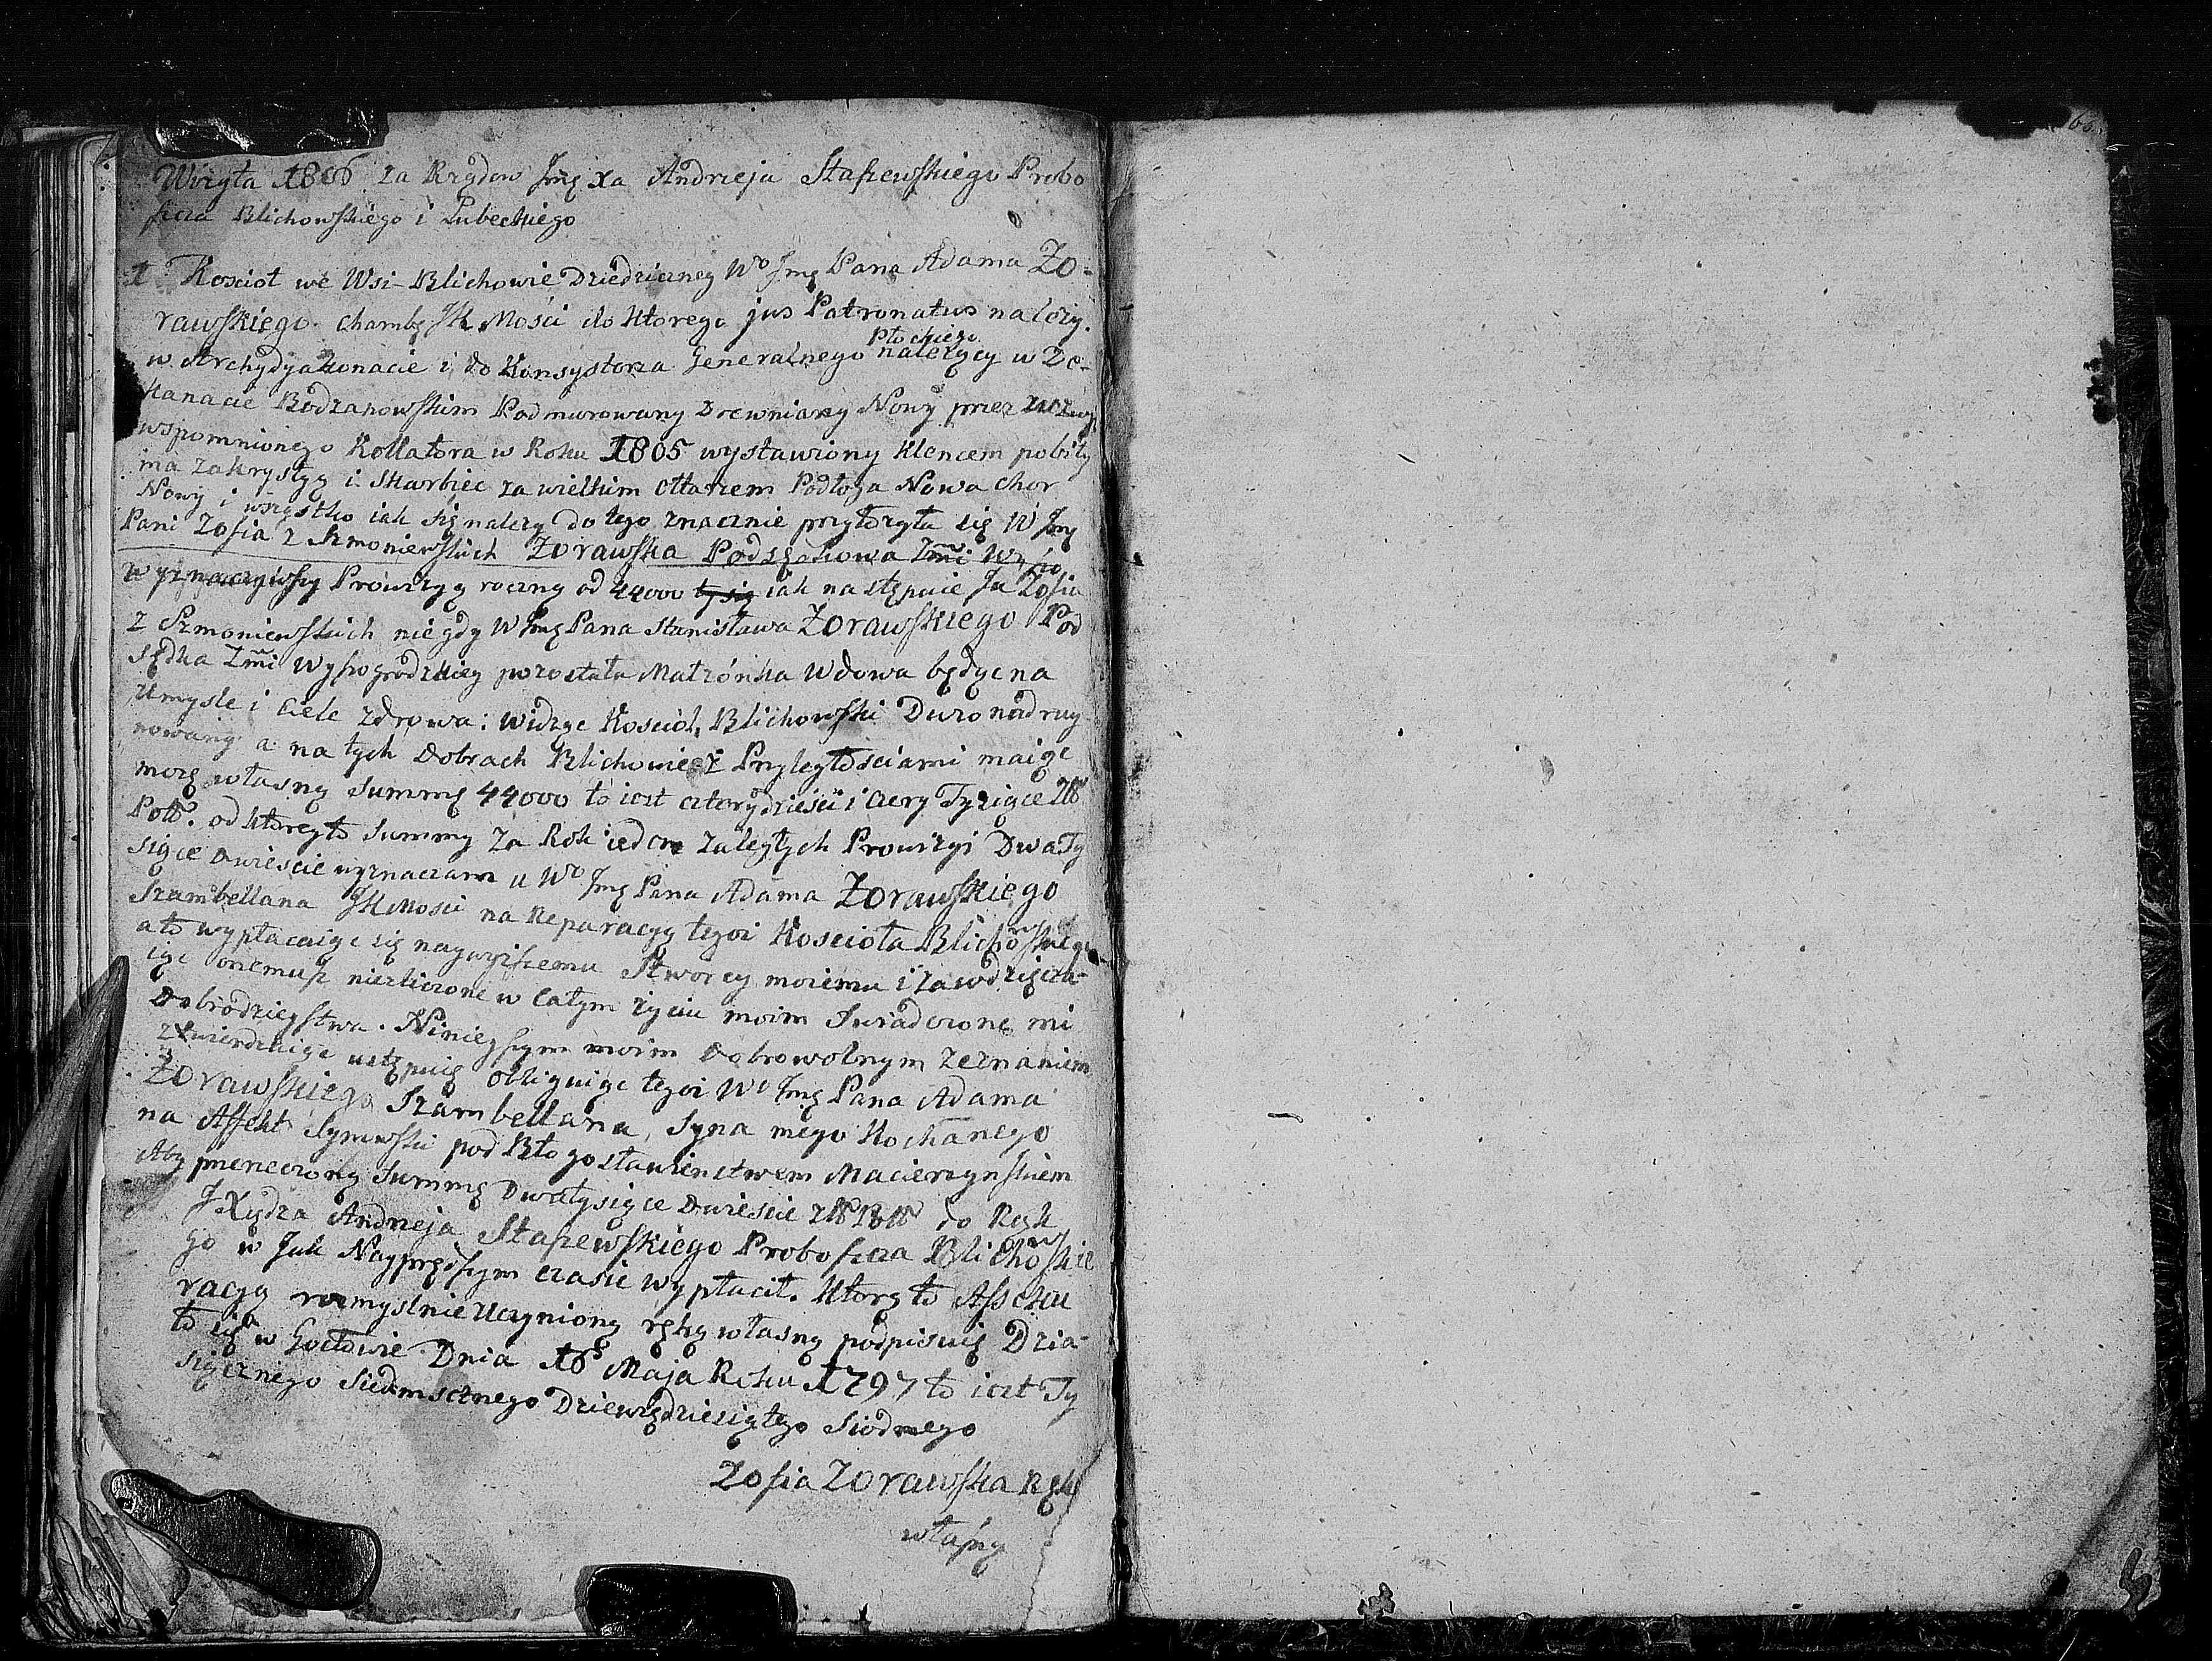 Wizyta 1806 za Rządow Jmę Xa Andrzeja Staszewskiego Probo
szcza Blichowskiego i Lubeckiego
66.
1 Kosciot we Wsi Blichowie Dziedziczney Wo Jmę Pana Adama Żo-
rawskiego Chambę JK Mości do ktorego jus Patronatus należy.
Płockiego
w Archydyakonacie i do Konsystorza Generalnego należący w De-
kanacie Bodzanowskim Podmurowany Drewniany Nowy przez
wspomnionego Kollatora w Roku 1805 wystawiony klencem pobity
ma zakrystyą i Skarbiec za wielkim ołtarzem Podłoga Nowa Chor
Nowy i wszystko iak się należy do tego znacznie przyłożyła się W Jmę
Pani Zofia z Szmoniewskich Żorawska Podsędkowa Zmi
Wyznaczywszy Prowizyą roczną od 44000 iak następuie Ja Zofia
z Szmoniewskich niegdy W Jmę Pana Stanisława Żorawskiego Pod
sędka Zmi Wyszogrodzkiey pozostała Matżonka Wdowa będąc na
Umysle i Ciele zdrowa: widząc Kościoł Blichowski Dużo nadruy
nowany a na tych Dobrach Blichowie z Przyległościami maiąc
moię własną Summę 44000 to iest czterydzieści i cztery Tysiące Złł
Poll. od ktoreyto Summy za Rok ieden zaległych Prowizyi Dwa Ty
siące dwieście wyznaczam u Wo Jmę Pana Adama Żorawskiego
Szambellana JK Mości na Reparacyą tegoż Kościoła Blichowskiego
a to wypłacaiąc się naywyższemu Stworcy moiemu i zawdzięcza-
iąc onemusz niezliczone w całym życiu moim świadczone mi
Dobrodzieystwa. Ninieyszym moim Dobrowolnym zeznaniem
ztwierdzaiąc ustępuię obliguiąc tegoż Wo Jmę Pana Adama
Żorawskiego Szambellana, Syna mego Kochanego
na Affekt Synowski pod Błogosławienstwem Macierzynskiem
Aby przerzeczoną Summę Dwatysiące Dwieście Złł Poll do Rąk
JXiędza Andrzeja Staszewskiego Proboszcza Blichowskie
go w Jak Nayprędszym czasie wypłacił. Ktorą to Asseku
racyą rozmyślnie Uczynioną ręką własną podpisuię Dzia-
ło się w Gocłowie Dnia 16 Maja Roku 1797 to iest Ty
siącznego Siedmsetnego Dziewiędziesiątego Siodmego
Zofia Żorawska Ręką
własną